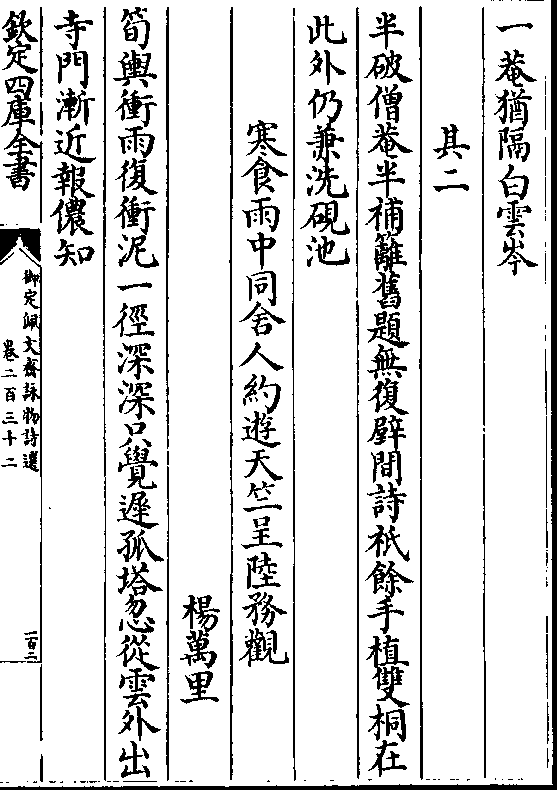 一菴猶隔白雲岑
其二
半破僧菴半補籬舊題無復壁間詩祇餘手植雙桐在
此外仍兼洗硯池
寒食雨中同舍人約遊天竺呈陸務觀
楊萬里
筍輿衝雨復衝泥一徑深深只覺遲孤塔忽從雲外出
寺門漸近報儂知
欽定四庫全書
御定佩文齋詠物詩選
卷二百三十二